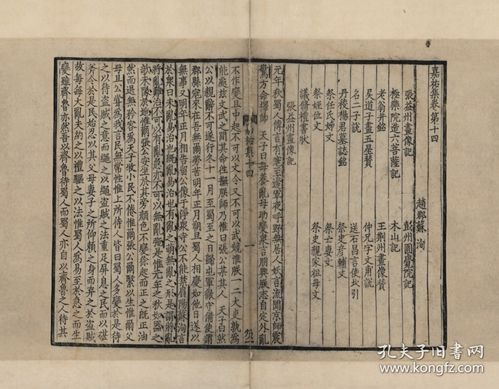 嘉祐集卷第十四
趙郡蘇洵
張益州畫像記 彭州圓覺禪院記
極樂院造六菩薩記 木山記
老翁井銘 王荆州畫像贊
吳道子畫五星贊 仲兄字文甫說
名二子說 送石昌言使北引
丹稜楊君墓誌銘 祭史彥輔文
祭任氏姉文 祭亡妻文
祭姪位文 祭史親家祖母文
議修禮書狀
張益州畫像記
元年秋蜀人傳言有寇至邊軍夜呼野無居人妖言流聞京師震
驚方命擇帥天子曰毋養亂毋助變衆言朋興朕志自定外亂
不作變且中起不可以文令又不可以武競惟朕一二大吏孰爲
能處茲文武之間其命往撫朕師乃推曰張公方平其人天子曰然
公以親辭不可遂行冬十一月至蜀至之日歸屯軍徹守備使謂
郡縣寇來在吾無爾勞苦明年正月朔旦蜀人相慶如他日遂以
無事又明年正月相告留公像于淨衆寺公不能禁眉陽蘇洵言
於衆曰未亂易治也既亂易治也有亂之萌無亂之形是謂將亂
將亂難治不可以有亂急亦不可以無亂弛是惟元年之秋如器之
欹未墜於地惟爾張公安坐於其旁顏色不變徐起而正之既正油
然而退無矜容爲天子牧小民不倦惟爾張公爾繄以生惟爾父
母且公嘗爲我言民無常性惟上所待人皆曰蜀人多變於是待
之以待盜賊之意而繩之以繩盜賊之法重足屏息之民而以碪
斧令於是民始忍以其父母妻子之所仰賴之身而棄之於盜賊
故每每大亂夫約之以禮驅之以法惟蜀人爲易至於急之而生
變雖齊魯亦然吾以齊魯待蜀人而蜀人亦自以齊魯之人待其
孔夫子旧书网
www.kongfz.com